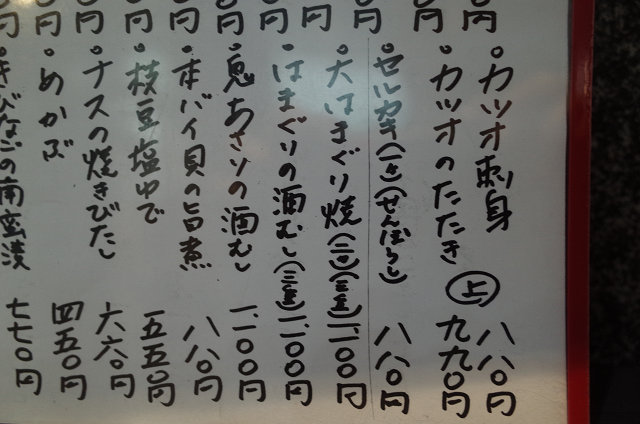 円 円 円 円 円 円 円 円 円 円
○カツオ刺身 八八〇円
○カツオのたたき 上 九九〇円
○セルカキ(一ケ)(せんぽうし) 八八〇円
○大はまぐり焼(二ケ)(三重)一、一〇〇円
○はまぐりの酒むし(三重)一、一〇〇円
○鬼あさりの酒むし 一、一〇〇円
○本バイ貝の旨煮 八八〇円
○枝豆塩ゆで 五五〇円
○ナスの焼きびたし 六六〇円
○めかぶ 四五〇円
○きびなごの南蛮漬 七七〇円